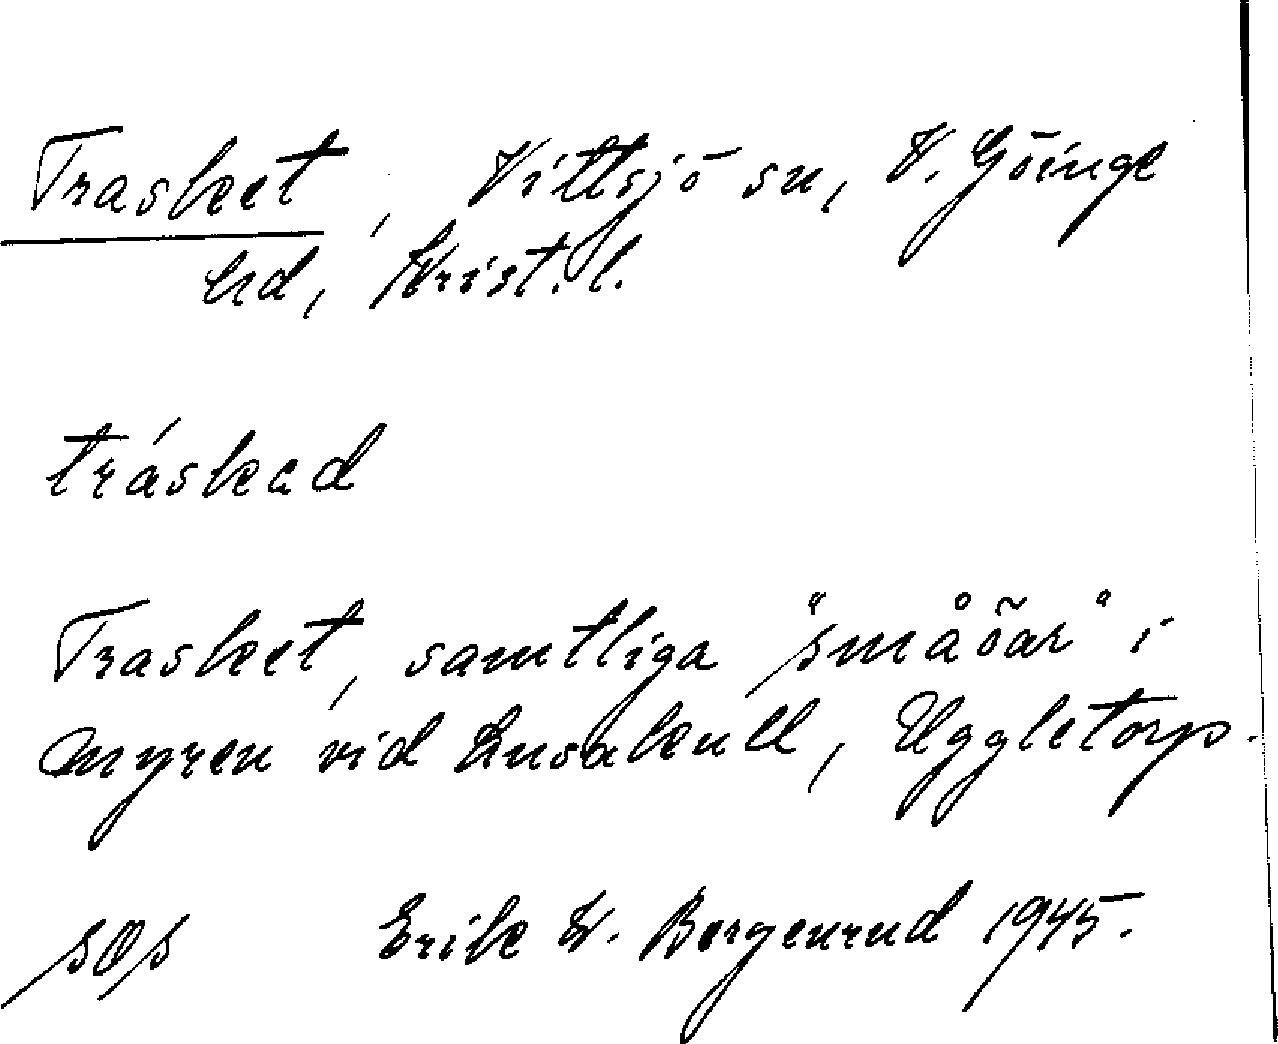 Trasket, Vittsjö sn, V. Göinge
hd, Krist. l.
tráskad
Trasket, samtliga "småöar" i
myren vid Lusakull, Uggletorp.
sOs Erik W. Bergenrud 1945.